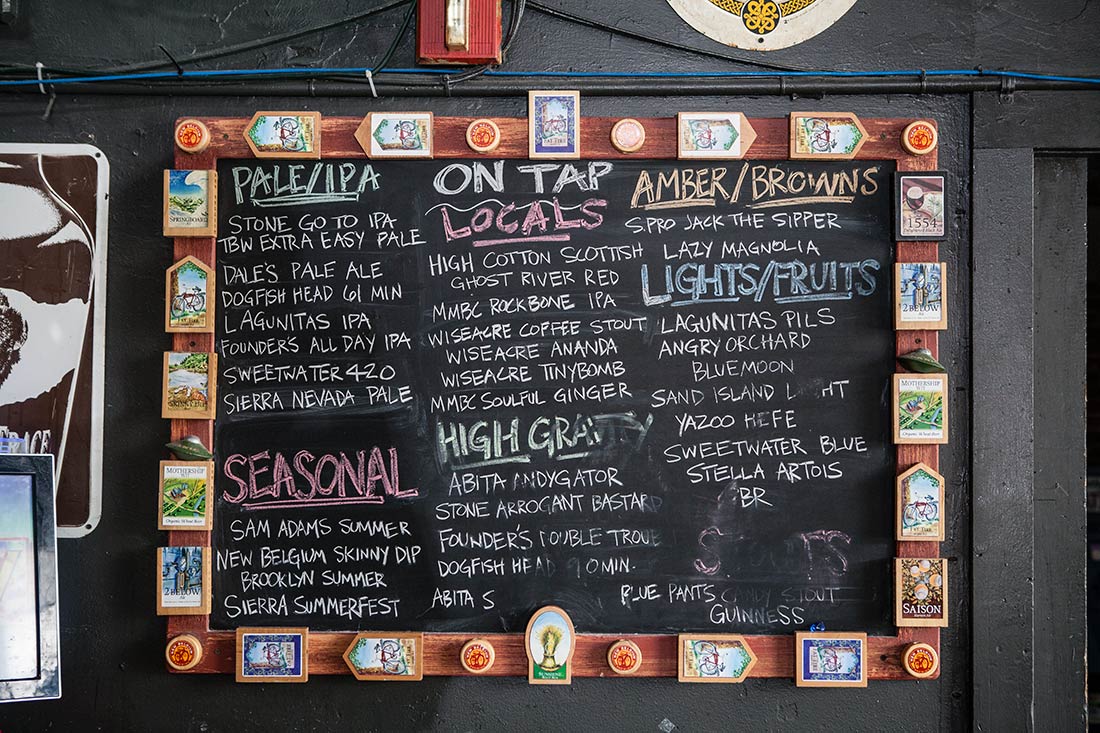 PALE/IPA
STONE GO TO IPA
TBW EXTRA EASY PALE
DALE'S PALE ALE
DOGFISH HEAD 61 MIN
LAGUNITAS IPA
FOUNDER'S ALL DAY IPA
SWEETWATER 420
SIERRA NEVADA PALE
SEASONAL
SAM ADAMS SUMMER
NEW BELGIUM SKINNY DIP
BROOKLYN SUMMER
SIERRA SUMMERFEST
ON TAP
LOCALS
HIGH COTTON SCOTTISH
GHOST RIVER RED
MMBC ROCKBONE IPA
WISEACRE COFFEE STOUT
WISEACRE ANANDA
WISEACRE TINYBOMB
MMBC SOULFUL GINGER
HIGH GRAVITY
ABITA ANDYGATOR
STONE ARROGANT BASTARD
FOUNDER'S DOUBLE TROUB
DOGFISH HEAD 90 MIN.
ABITA S
AMBER/BROWNS
S.PRO JACK THE SIPPER
LAZY MAGNOLIA
LIGHTS/FRUITS
LAGUNITAS PILS
ANGRY ORCHARD
BLUEMOON
SAND ISLAND L HT
YAZOO HEFE
SWEETWATER BLUE
STELLA ARTOIS
BR
STOUTS
BLUE PANTS CANDY STOUT
GUINNESS
SPRINGBOARD
MOTHERSHIP
WIT
Organic Wheat Beer
2° BELOW
Ale
FAT TIRE
1554
2° BELOW
Ale
MOTHERSHIP
WIT
Organic Wheat Beer
FAT TIRE
SAISON
SUNSHINE
NEW BELGIUM